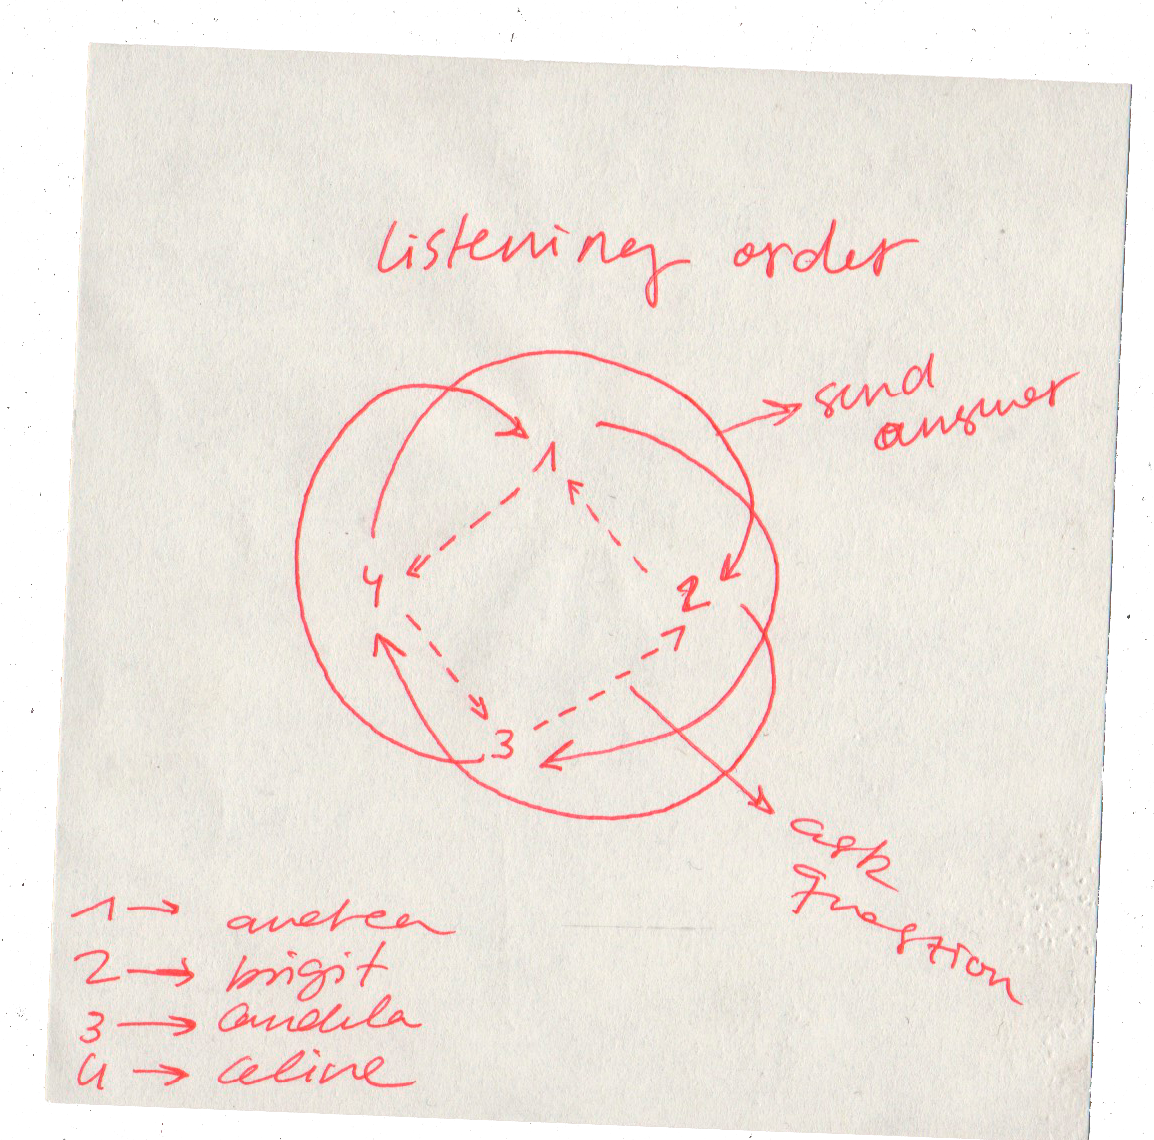 listening order
send
answer
1
4
2
3
ask
question
1 → andrea
2 → brigit
3 → candela
4 → celine